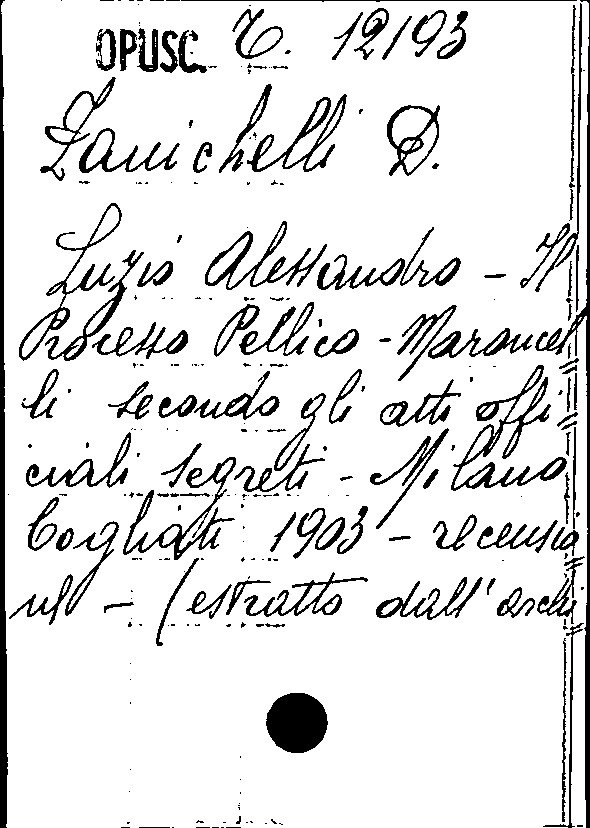 OPUSC. C. 12193
Zanichelli D.
Luzio Alessandro - Il
Processo Pellico - Maroncel
li secondo gli atti offi
ciali segreti - Milano
Cogliati 1903 - recensio
ne - (estratto dall'archi